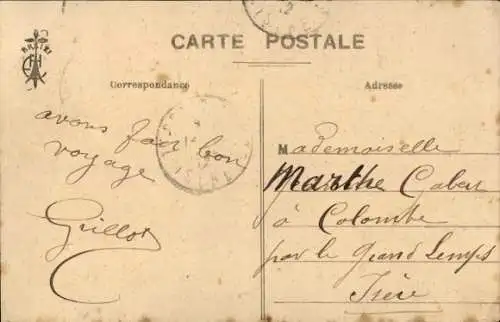 CARTE POSTALE
Correspondance
Adresse
avons fait bon
voyage
Grillot
Mademoiselle
Marthe Cabat
à Colombe
par le Grand Lemps
Isère
ISÈRE